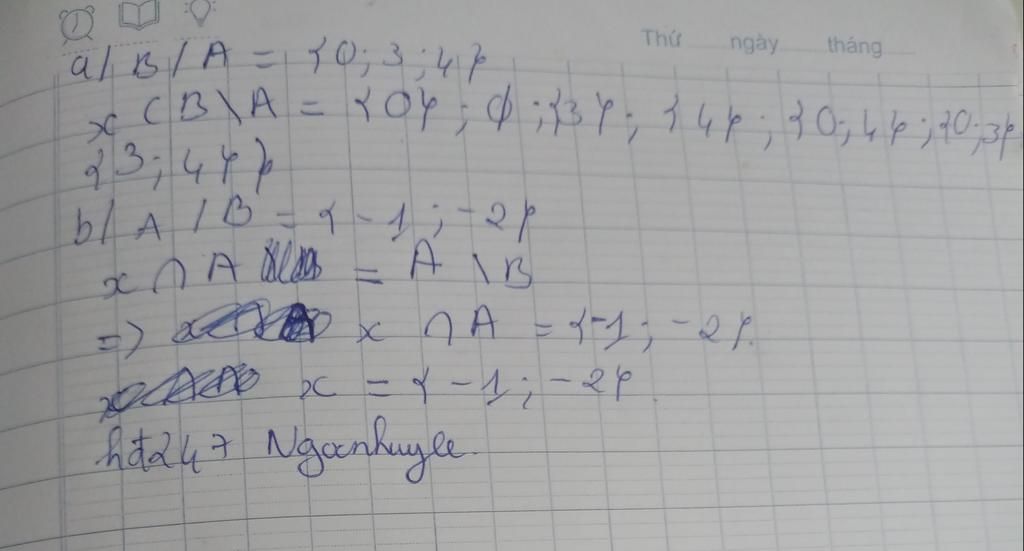 Thứ ngày tháng
a/ B / A = {0; 3; 4}
x ⊂ B \ A = {0}; ∅; {3}; {4}; {0; 4}; {0; 3}
{3; 4}}
b/ A / B = {-1; -2}
x ∩ A = A \ B
=> x ∩ A = {-1; -2}.
x = {-1; -2}.
hđ247 Ngocnhuyle.